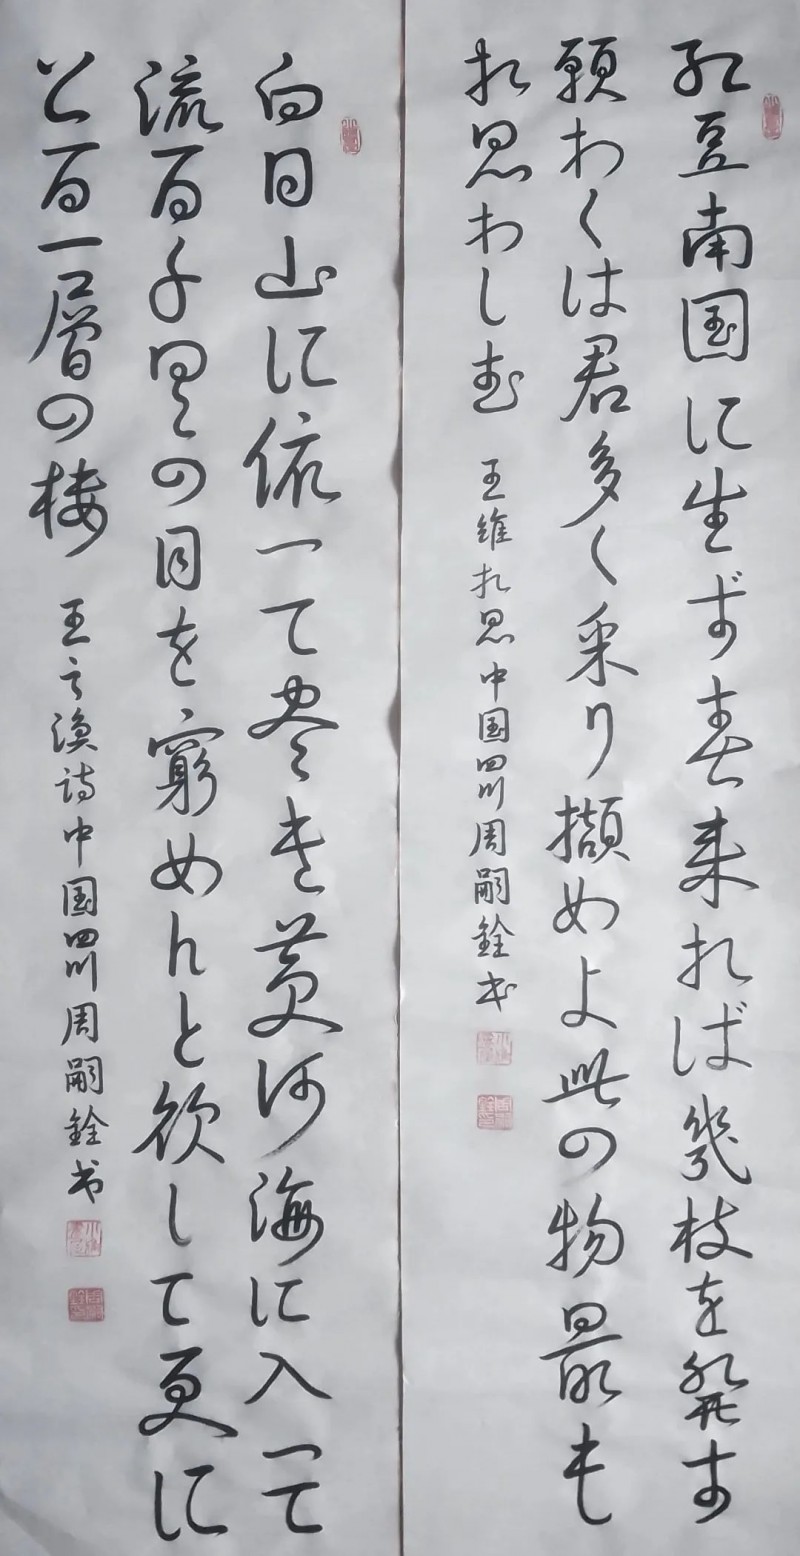 红豆南国に生ず春来れば幾枝を發す
願わくは君多く采り擷めよ此の物最も
相思わしむ 王維相思中国四川周嗣銓书
白日山に依って尽き黄河海に入って
流る千里の目を窮めんと欲して更に
上る一層の楼 王之渙诗中国四川周嗣銓书